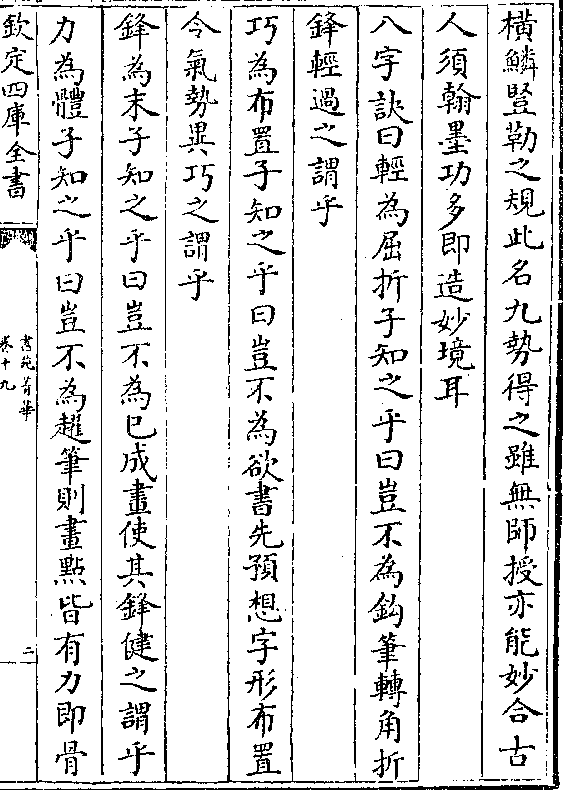 橫鱗豎勒之規此名九勢得之雖無師授亦能妙合古
人須翰墨功多即造妙境耳
八字訣曰輕為屈折子知之乎曰豈不為鈎筆轉角折
鋒輕過之謂乎
巧為布置子知之乎曰豈不為欲書先預想字形布置
令氣勢異巧之謂乎
鋒為末子知之乎曰豈不為已成畫使其鋒健之謂乎
力為體子知之乎曰豈不為趯筆則畫點皆有力即骨
欽定四庫全書
書苑菁華
卷十九
二